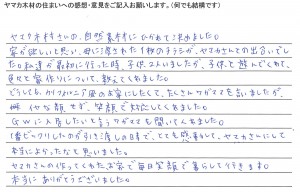 ヤマカ木材の住まいへの感想・意見をご記入お願いします。(何でも結構です)
ヤマカ木材さんの、自然素材にひかれて決めました。
家が欲しいと思い、母に渡された1枚のチラシが、ヤマカさんとの出会いでし
た。私達が最初に行った時、子供2人いましたが、子供と遊んでくれて、
色々と家作りについて、教えてくれました。
どうしても、カリフォルニア風のお家にしたくて、たくさんワガママを言いましたが、
嫌な顔せず、笑顔で対応してくれました。
GWに入居したいと言うワガママも聞いてくれました。
1番ビックリしたのが引き渡しの日まで、とても感動して、ヤマカさんにして
本当によかったなと思いました。
ヤマカさんの作ってくれたお家で毎日笑顔で暮らして行きます。
本当にありがとうございました。